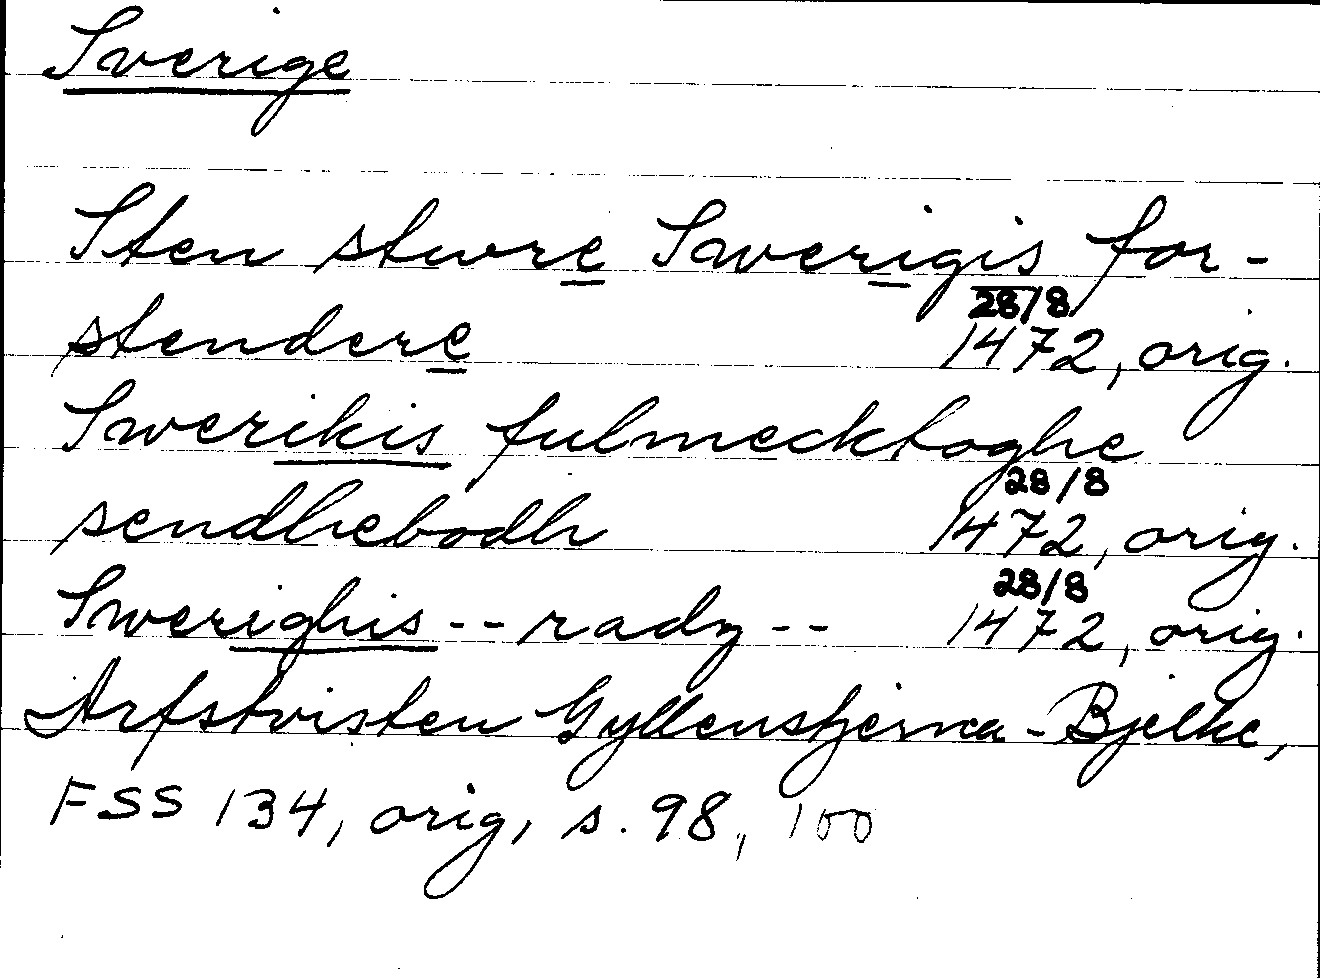 Sverige
Sten stwre Swerigis for-
28/8
stendere 1472, orig.
Swerikis fulmecktoghe
28/8
sendhebodh 1472, orig.
28/8
Swerighis -- radz -- 1472, orig.
Arfstvisten Gyllenstjerna - Bjelke,
FSS 134, orig, s. 98, 100